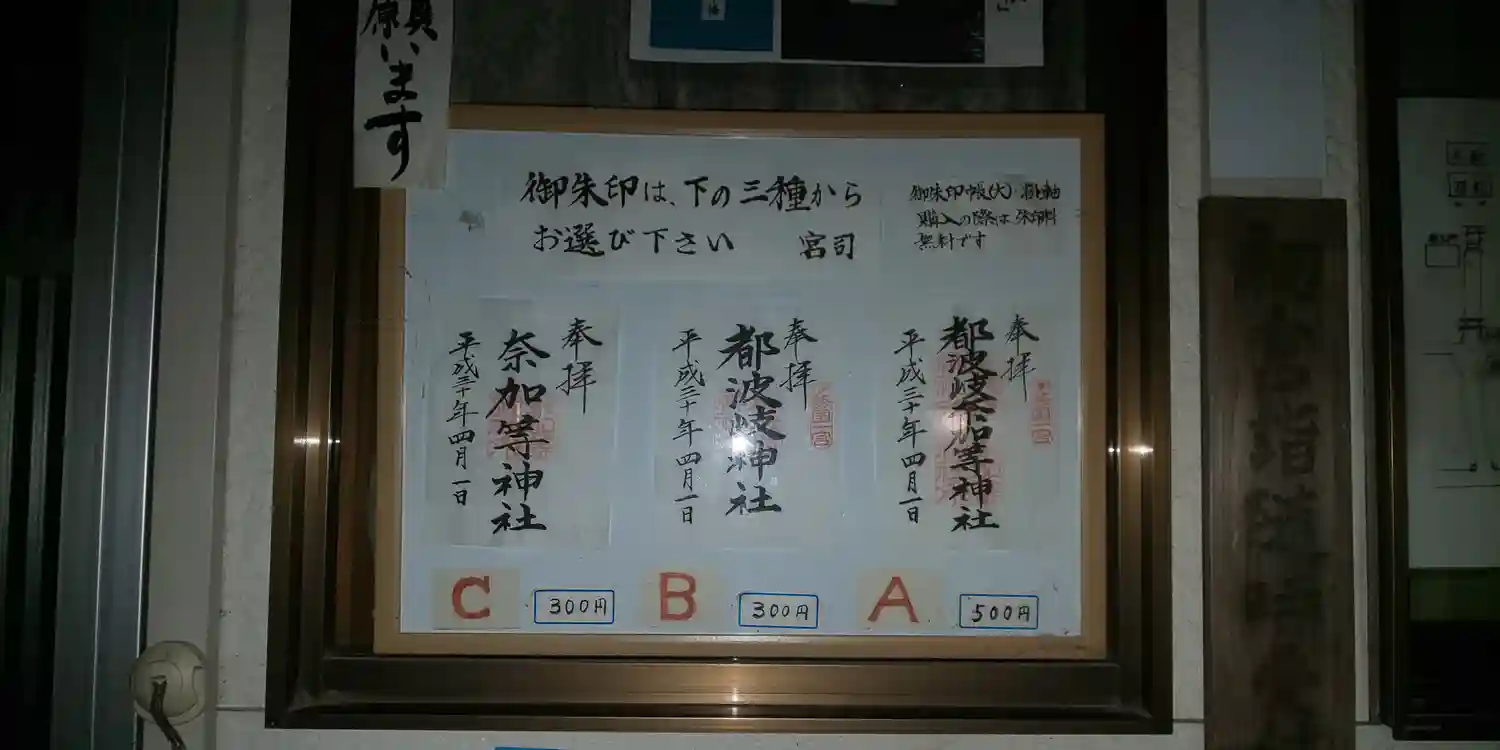 願います
御朱印は、下の三種から
お選び下さい 宮司
御朱印帳(大)・掛軸
購入の際は朱印料
無料です
奉拝
都波岐奈加等神社
平成三十年四月一日
奉拝
都波岐神社
平成三十年四月一日
奉拝
奈加等神社
平成三十年四月一日
A
500円
B
300円
C
300円